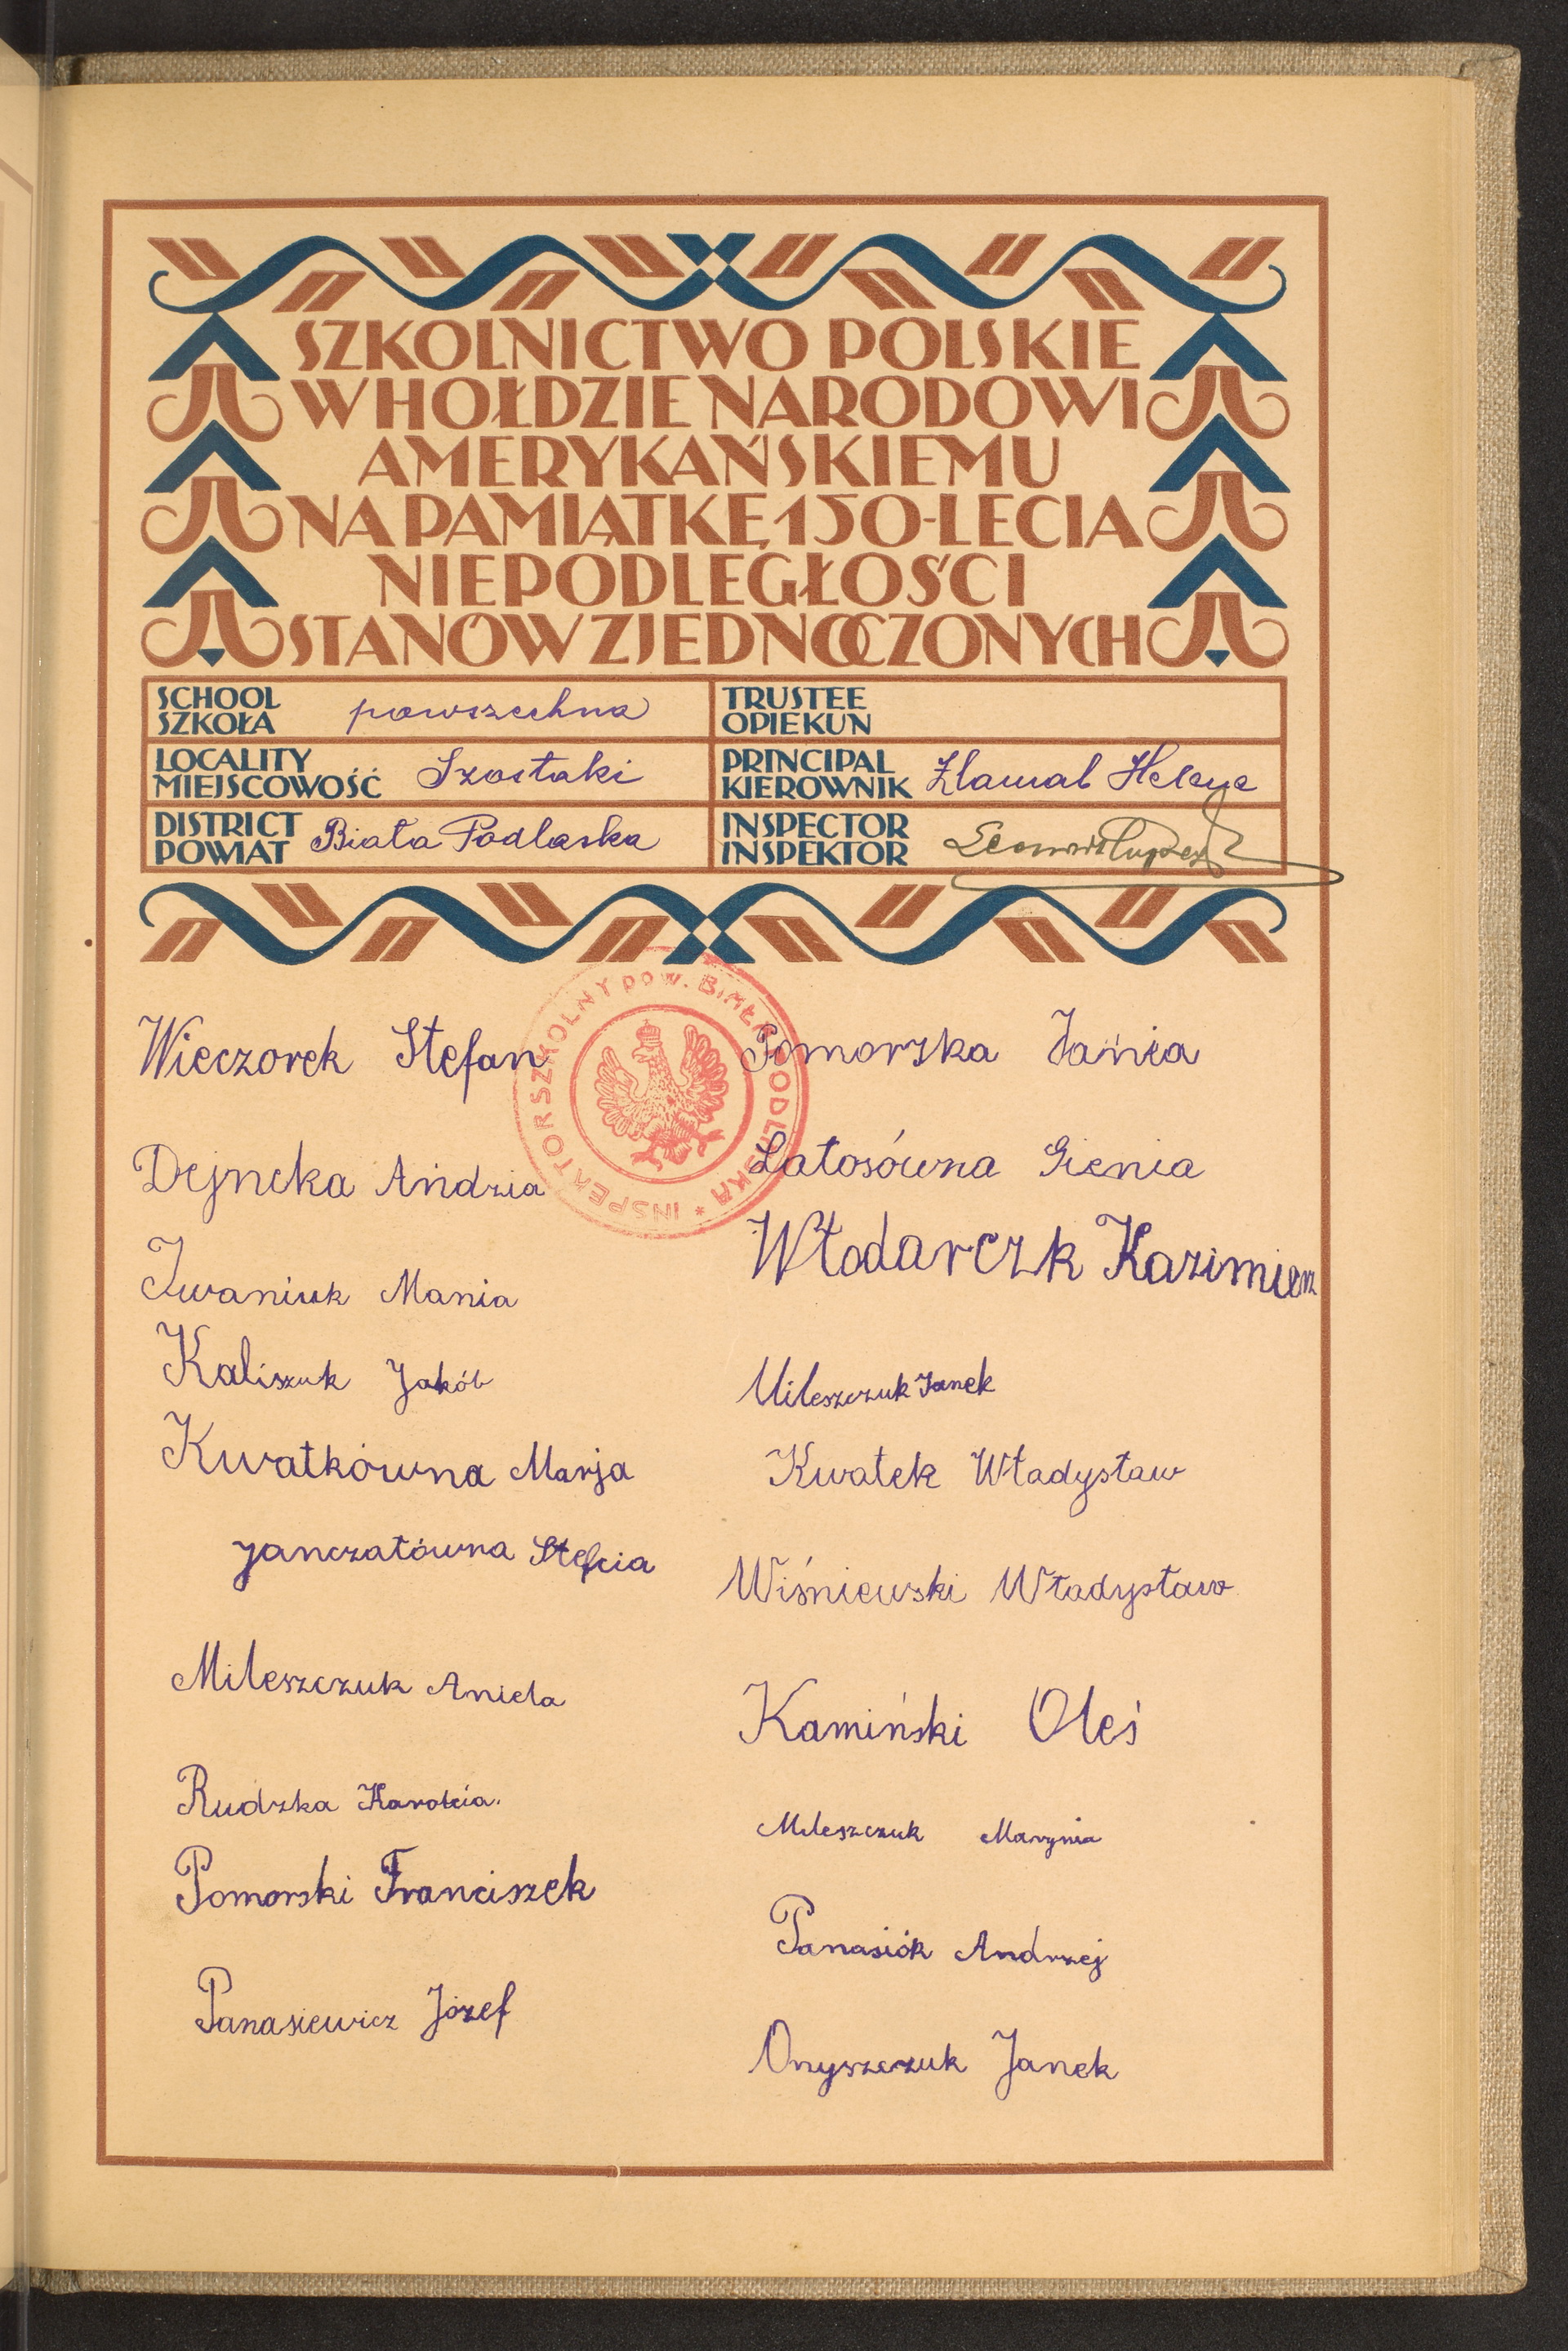 SZKOLNICTWO POLSKIE
W HOŁDZIE NARODOWI
AMERYKAŃSKIEMU
NA PAMIĄTKĘ 150-LECIA
NIEPODLEGŁOŚCI
STANÓW ZJEDNOCZONYCH
SCHOOL
SZKOŁA powszechna
TRUSTEE
OPIEKUN
LOCALITY
MIEJSCOWOŚĆ Szostaki
PRINCIPAL
KIEROWNIK Złamal Helena
DISTRICT
POWIAT Biała Podlaska
INSPECTOR
INSPEKTOR
INSPEKTOR SZKOLNY POW. BIAŁA PODLASKA *
Wieczorek Stefan
Dejneka Andzia
Iwaniuk Mania
Kaliszuk Jakób
Kwatkówna Marja
Janczatówna Stefcia
Mileszczuk Aniela
Rudzka Karolcia.
Pomorski Franciszek
Panasiewicz Józef
Pomorska Jania
Latosówna Gienia
Włodarczk Kazimierz
Mileszczuk Janek
Kwatek Władysław
Wiśniewski Władysław
Kamiński Oleś
Mileszczuk Marynia
Panasiók Andrzej
Onyszczuk Janek